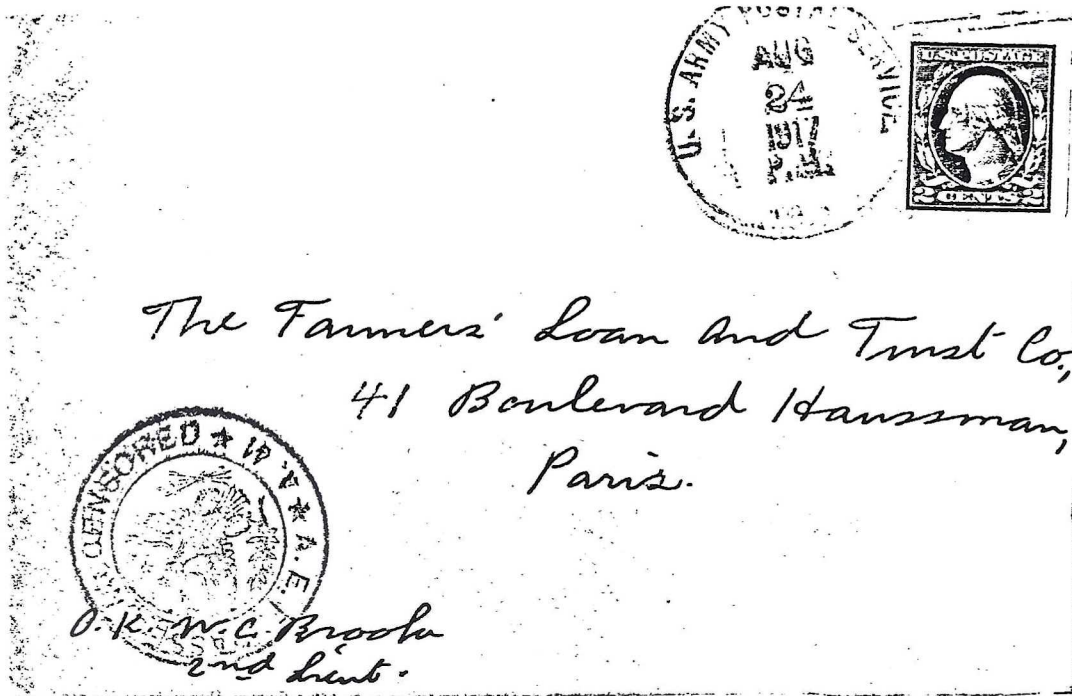 U.S. ARMY POSTAL SERVICE
AUG
24
1917
P.M.
U.S. POSTAGE
2 CENTS 2
The Farmers' Loan and Trust Co.,
41 Boulevard Haussman,
Paris.
CENSORED ★ ★ A.E.
O.K. W.C. Brooks
2nd Lieut.